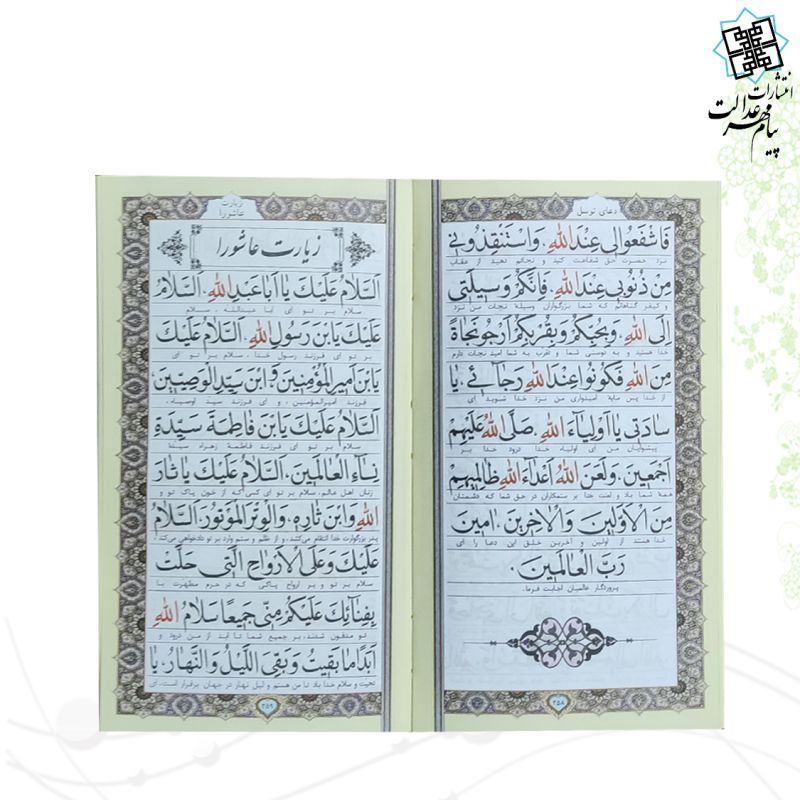 انتشارات
پیام مهر عدالت
دعای توسل
فَاشْفَعُوالی عِنْدَ اللهِ، وَاسْتَنْقِذُونی
نزد حضرت حق شفاعت کنید و نجاتم دهید از عقاب
مِنْ ذُنُوبی عِنْدَ اللهِ، فَاِنَّکُمْ وَسیلَتی
و کیفر گناهانم که شما بزرگواران وسیله نجات من نزد
اِلَی اللهِ، وَبِحُبِّکُمْ وَبِقُرْبِکُمْ اَرْجُو نَجاةً
خدا هستید و به دوستی شما و تقرب به شما امید نجات دارم
مِنَ اللهِ فَکُونُوا عِنْدَ اللهِ رَجآئی، یا
از خدا پس مایه امیدواری من نزد خدا شوید ای
سادَتی یا اَوْلِیآءَ اللهِ، صَلَّی اللهُ عَلَیْهِمْ
پیشوایان من ای اولیاء خدا درود خدا بر
اَجْمَعینَ، وَلَعَنَ اللهُ اَعْدآءَ اللهِ ظالِمیهِمْ
همه شما باد و لعنت خدا بر ستمکاران در حق شما که دشمنان
مِنَ الْاَوَّلینَ وَالْاخِرینَ، امینَ
خدا هستند از اولین و آخرین خلق این دعا را ای
رَبَّ الْعالَمینَ.
پروردگار عالمیان اجابت فرما.
۲۵۸
زیارت
عاشورا
زیارت عاشورا
اَلسَّلامُ عَلَیْكَ یا اَباعَبْدِ اللهِ، اَلسَّلامُ
سلام بر تو ای ابا عبدالله، سلام
عَلَیْكَ یَابْنَ رَسُولِ اللهِ، اَلسَّلامُ عَلَیْكَ
بر تو ای فرزند رسول خدا، سلام بر تو ای
یَابْنَ اَمیرِ الْمُؤْمِنینَ وَابْنَ سَیِّدِ الْوَصِیّینَ،
فرزند امیرالمؤمنین، و ای فرزند سید اوصیاء،
اَلسَّلامُ عَلَیْكَ یَابْنَ فاطِمَةَ سَیِّدَةِ
سلام بر تو ای فرزند فاطمة زهراء سیدة
نِسآءِ الْعالَمینَ، اَلسَّلامُ عَلَیْكَ یا ثارَ
زنان اهل عالم، سلام بر تو ای کسی که از خون پاک تو و
اللهِ وَابْنَ ثارِهِ، وَالْوِتْرَ الْمَوْتُورَ، اَلسَّلامُ
پدر بزرگوارت خدا انتقام می‌کشد، و از ظلم و ستم وارد بر تو دادخواهی می‌کند؛
عَلَیْكَ وَعَلَی الْاَرْواحِ الَّتی حَلَّتْ
سلام بر تو و بر ارواح پاکی که در حرم مطهرت با
بِفِنآئِكَ عَلَیْکُمْ مِنّی جَمیعًا سَلامُ اللهِ
تو مدفون شدند، بر جمیع شما تا ابد از من درود و
اَبَدًا ما بَقیتُ وَ بَقِیَ اللَّیْلُ وَ النَّهارُ، یا
تحیت و سلام خدا باد تا من هستم و لیل نهار در جهان برقرار است، ای
۲۵۹